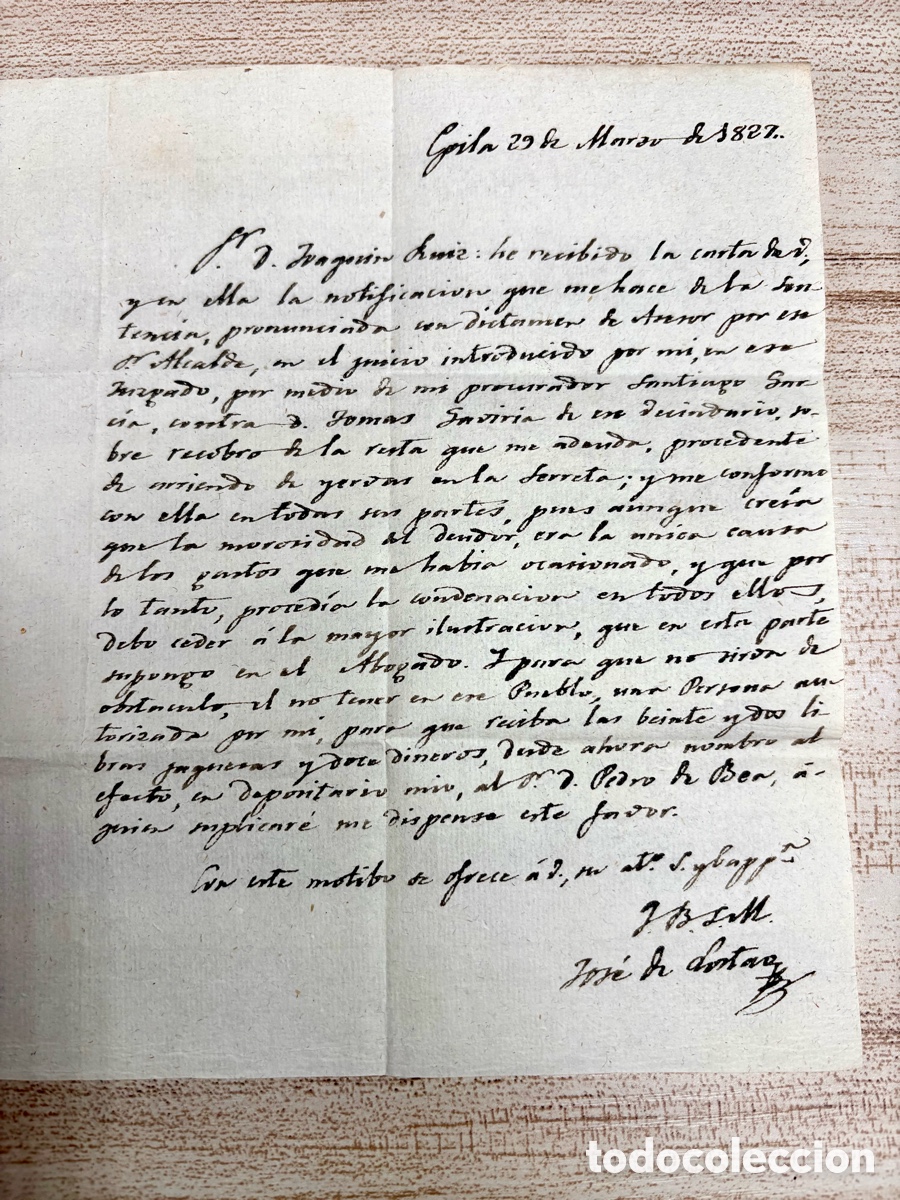 Epila 29 de Marzo de 1827.
Sr. D. Joaquin Ruiz: he recibido la carta de V.,
y en ella la notificacion que me hace de la Sen-
tencia, pronunciada con dictamen de Asesor por ese
Sr. Alcalde, en el juicio introducido por mi, en ese
Juzgado, por medio de mi procurador Santiago Gar-
cia, contra D. Tomas Gaviria de ese vecindario, so-
bre recobro de la resta que me adeuda, procedente
de arriendo de yervas en la Serreta; y me conformo
con ella en todas sus partes, pues aunque creía
que la morosidad del deudor, era la unica causa
de los gastos que me habia ocasionado, y que por
lo tanto, procedía la condenacion en todos ellos,
debo ceder á la mayor ilustracion, que en esta parte
supongo en el Abogado. Y para que no sirva de
obstaculo, el no tener en ese Pueblo, una Persona au-
torizada por mi, para que reciba las beinte y dos li-
bras jaquesas y doce dineros, desde ahora nombro al
efecto, en depositario mio, al Sr. D. Pedro de Bea, á-
quien suplicaré me dispense este favor.
Con este motibo se ofrece á V., su atto. S. y
Q.B.S.M.
José de
todocoleccion